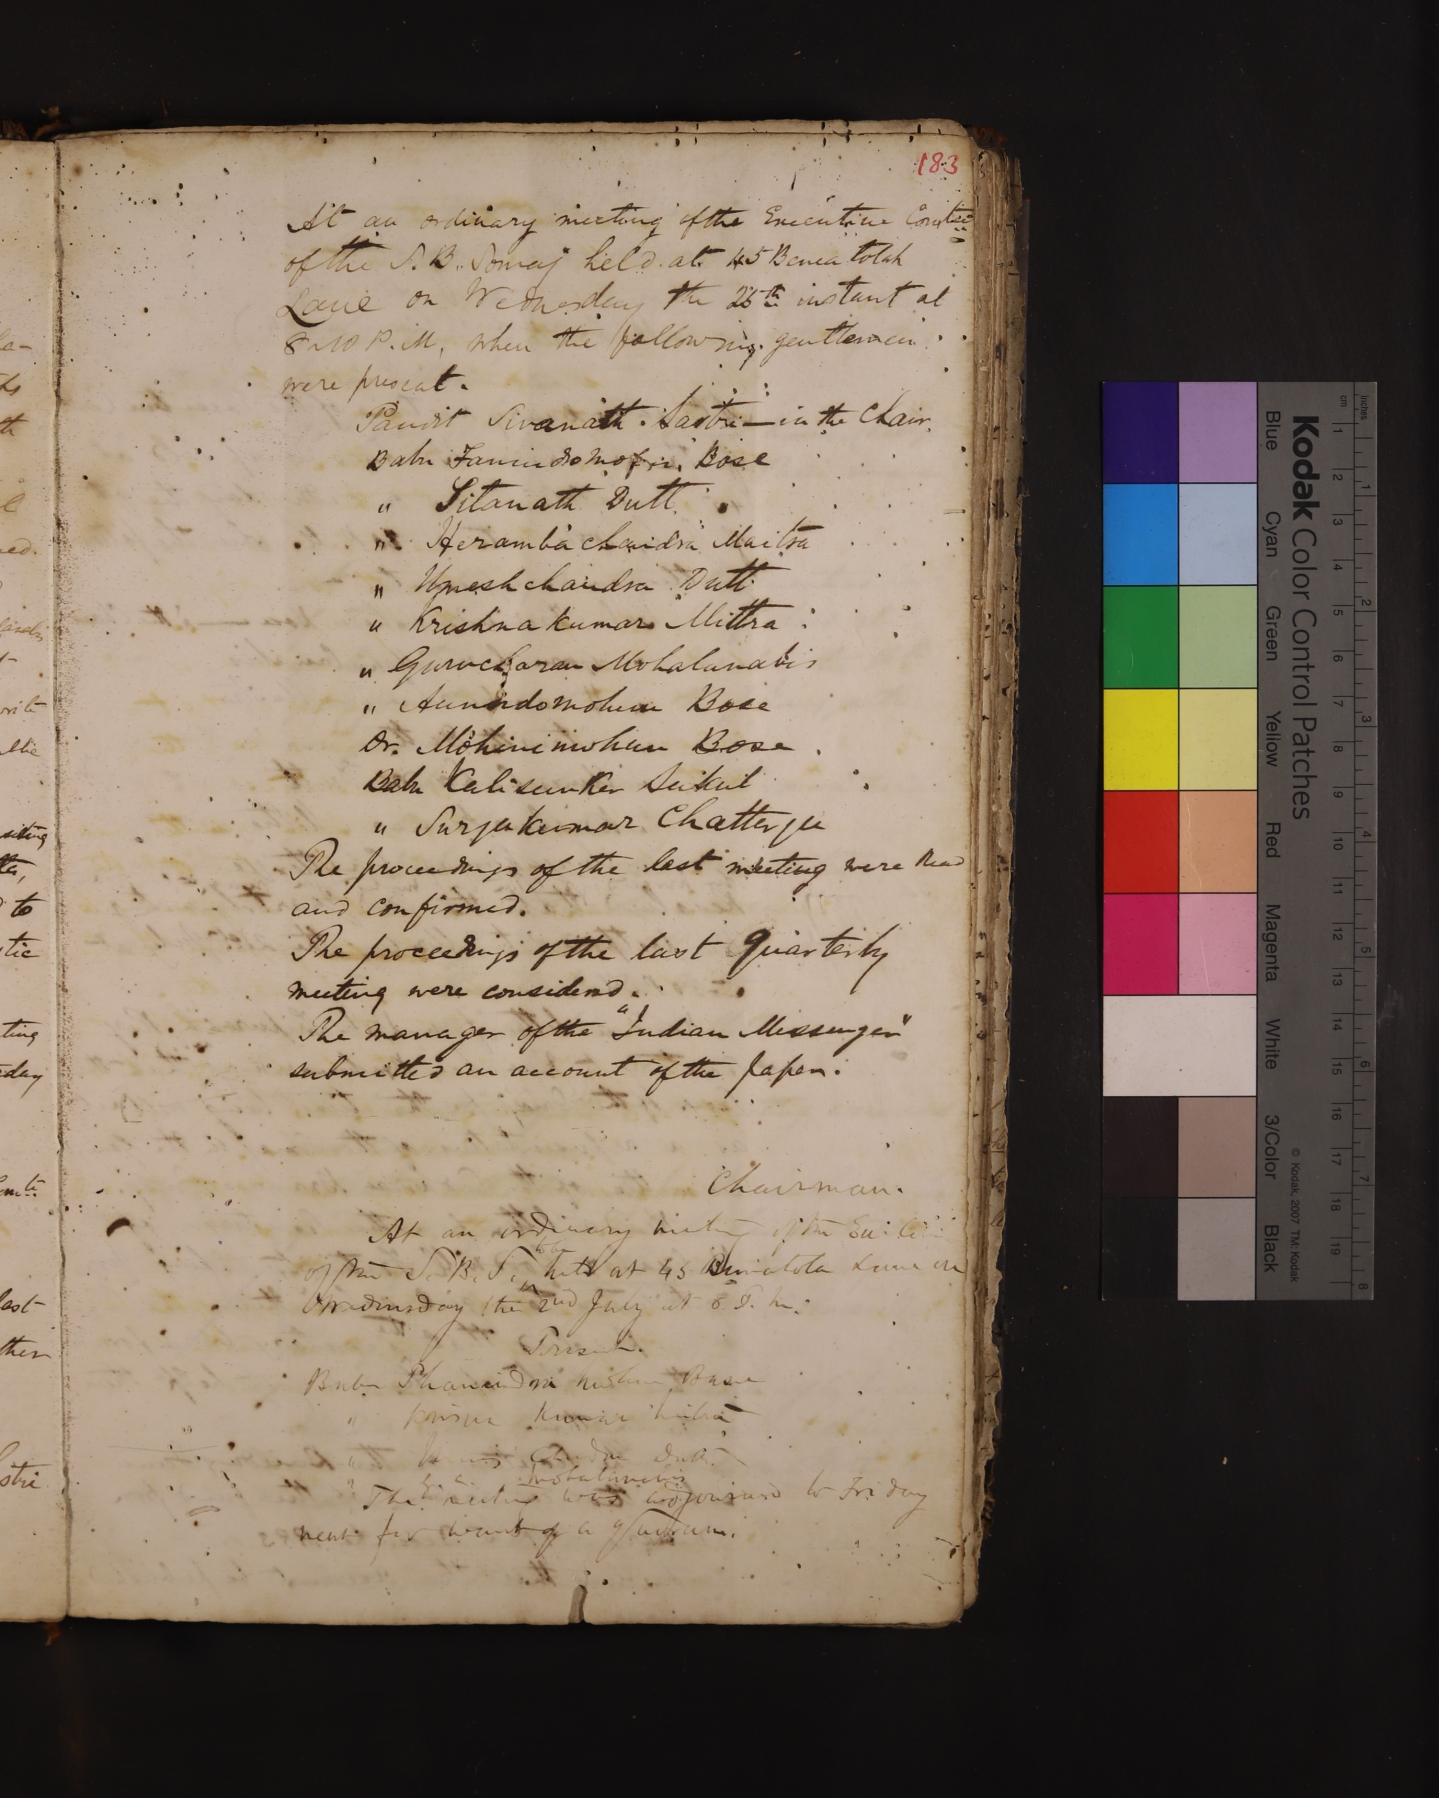 183
At an ordinary meeting of the Executive Comtee
of the S. B. Somaj held at 45 Beneatolah
Lane on Wednesday the 25th instant at
8-10 P.M, when the following gentlemen
were present.
Pandit Sivanath Sastri — in the Chair.
Babu Fanindromohun Bose
" Sitanath Dutt
" Heramba chandra Maitra
" Umesh chandra Dutt
" Krishna kumar Mittra
" Gurucharan Mohalanabis
" Anundomohun Bose
Dr. Mohinimohun Bose
Babu Kalisunker Sukul
" Surjukumar Chatterjee
The proceedings of the last meeting were read
and confirmed.
The proceedings of the last Quarterly
meeting were considered.
The manager of the "Indian Messenger"
submitted an account of the paper.
Chairman.
At an ordinary meeting of the
of the S. B. S. held at 45 Beniatola Lane on
Wednesday the 2nd July at 8 P. M.
Present.
Babu Phanindra Mohun Bose
" Kumar Mitra
" Dutt
" Mohalanabis
The meeting was adjourned to Friday
next for want of a quorum.
la-
ks
th
ed.
siting
to
tic
ting
day
last
ther
stri
Kodak Color Control Patches
Blue
Cyan
Green
Yellow
Red
Magenta
White
3/Color
Black
© Kodak, 2007 TM: Kodak
cm
1 2 3 4 5 6 7 8 9 10 11 12 13 14 15 16 17 18 19
inches
1 2 3 4 5 6 7 8